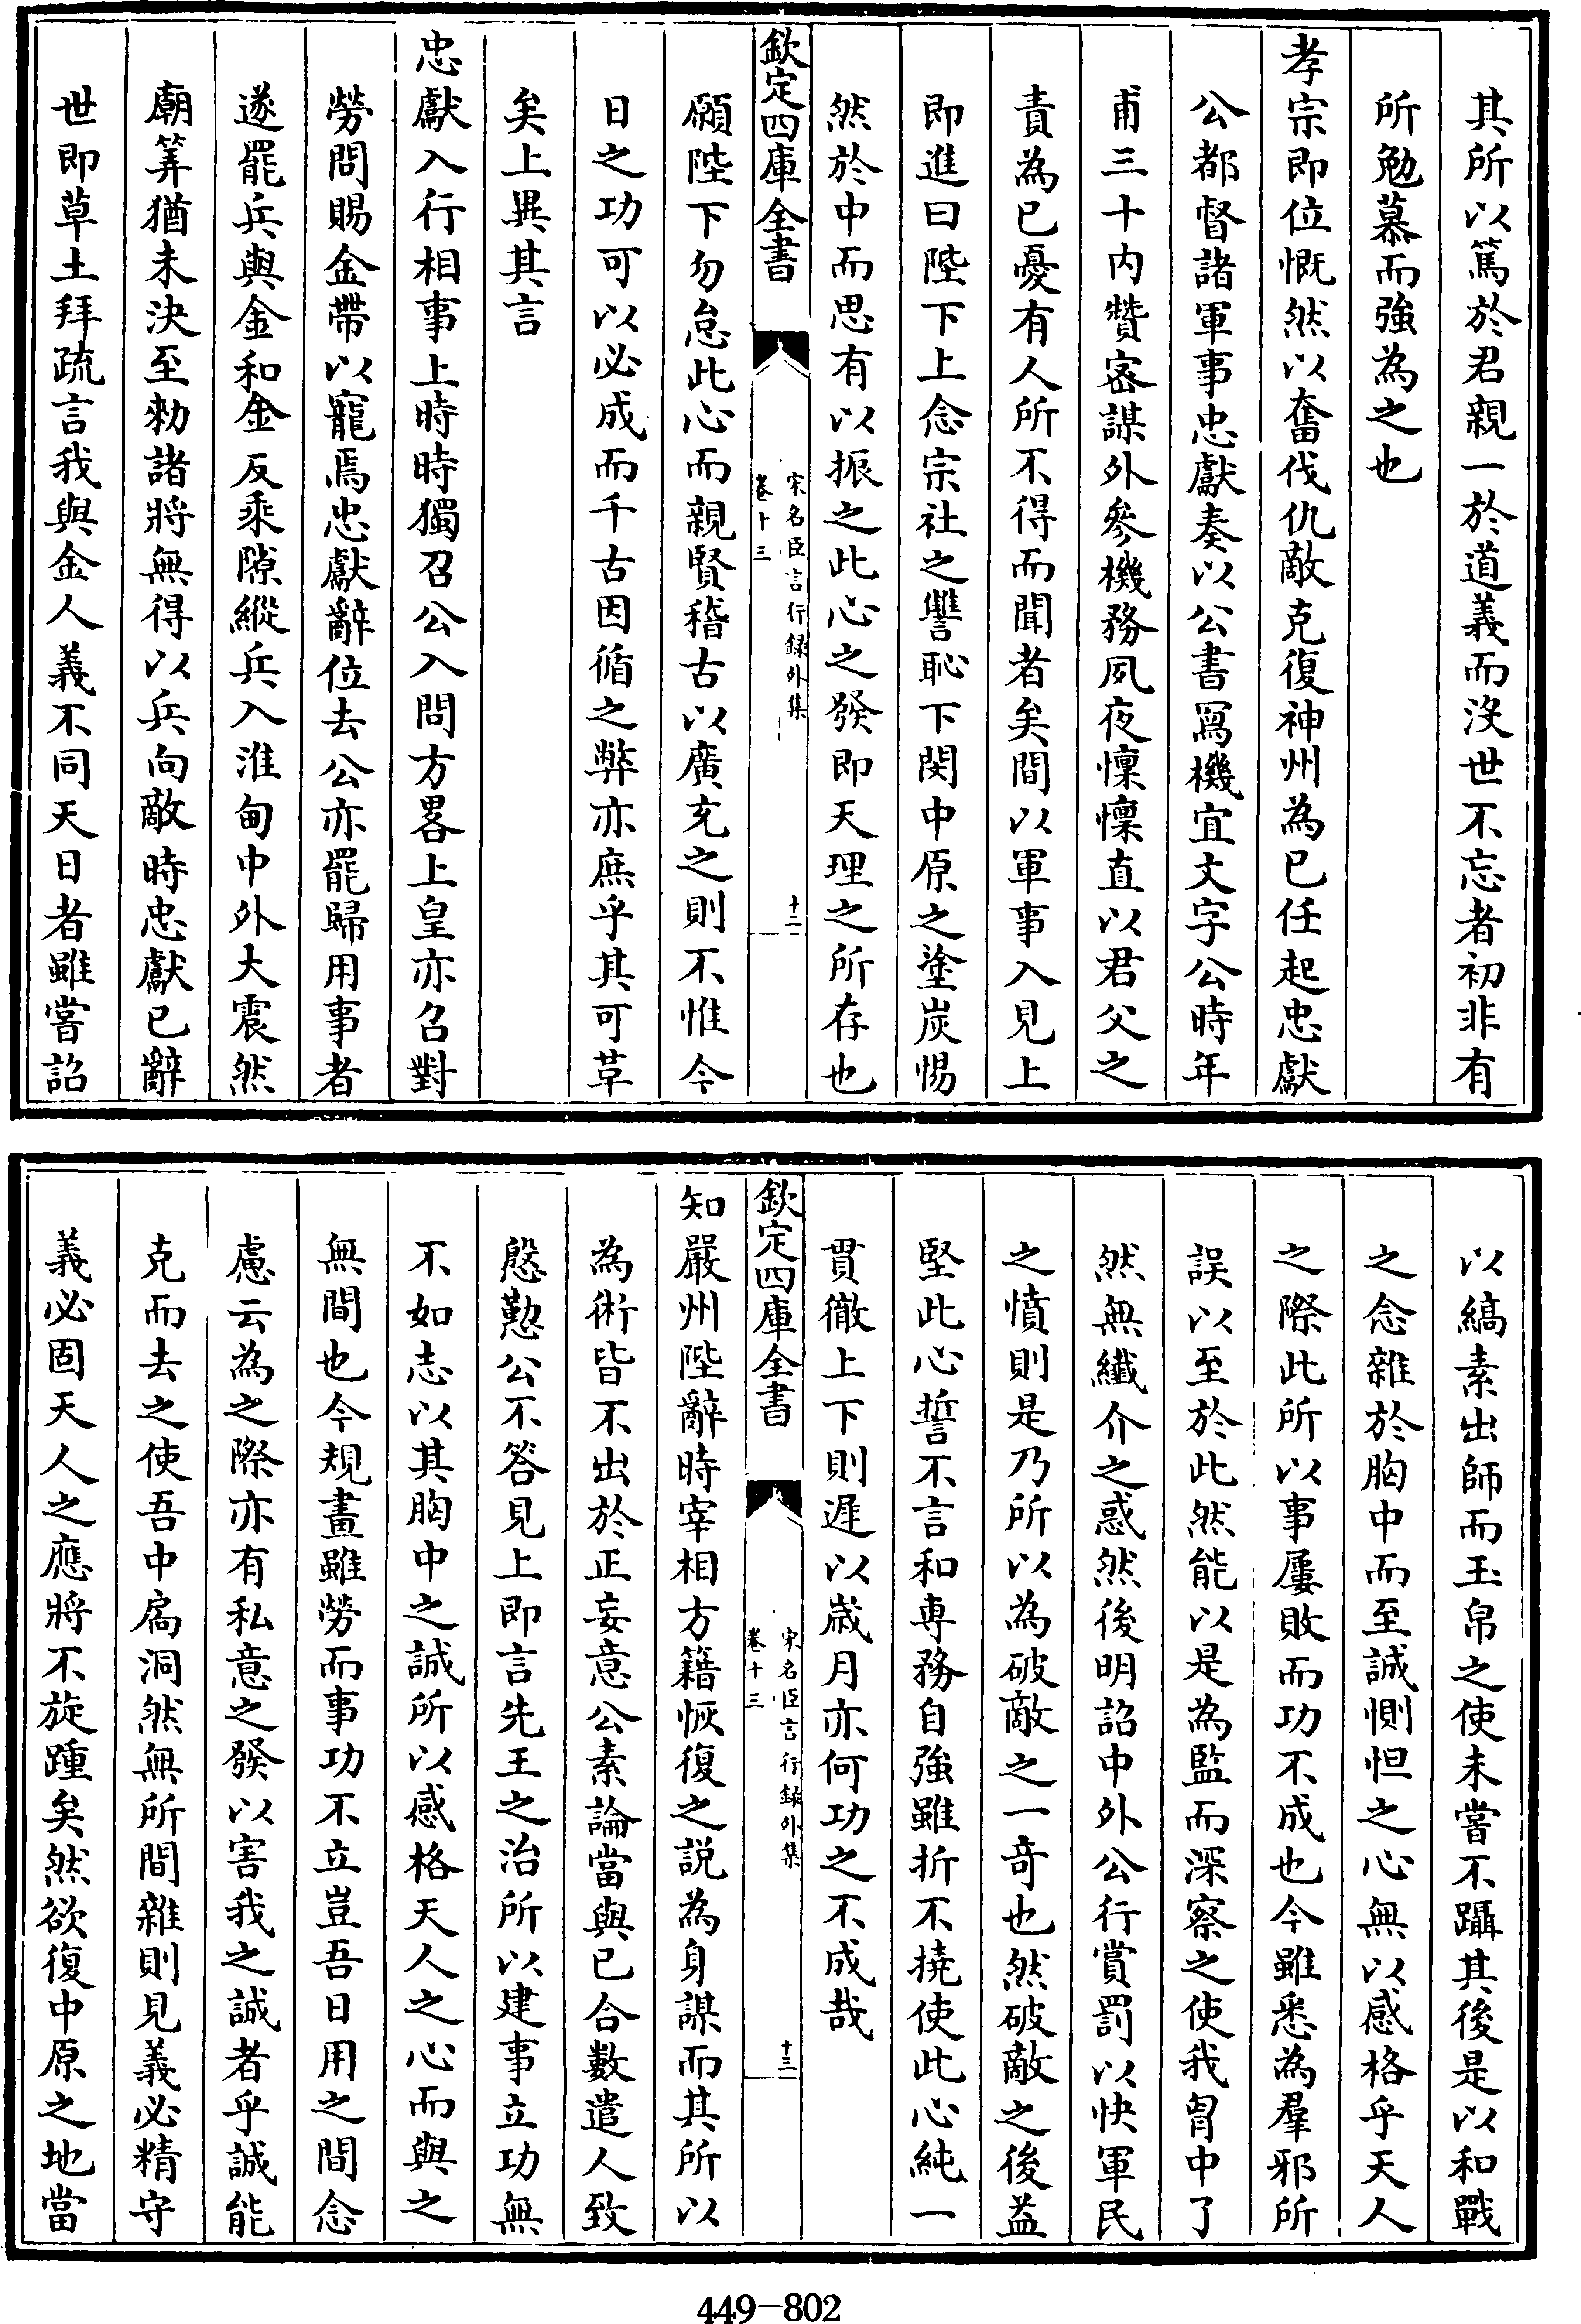 其所以篤於君親一於道義而沒世不忘者初非有
所勉慕而強為之也
孝宗即位慨然以奮伐仇敵克復神州為已任起忠獻
公都督諸軍事忠獻奏以公書寫機宜文字公時年
甫三十内贊密謀外參機務夙夜懔懔直以君父之
責為已憂有人所不得而聞者矣間以軍事入見上
即進曰陛下上念宗社之讐恥下閔中原之塗炭惕
然於中而思有以振之此心之發即天理之所存也
欽定四庫全書
宋名臣言行録外集
卷十三
十二
願陛下勿怠此心而親賢稽古以廣充之則不惟今
日之功可以必成而千古因循之弊亦庶乎其可革
矣上異其言
忠獻入行相事上時時獨召公入問方畧上皇亦召對
勞問賜金帶以寵焉忠獻辭位去公亦罷歸用事者
遂罷兵與金和金反乘隙縱兵入淮甸中外大震然
廟筭猶未決至勑諸將無得以兵向敵時忠獻已辭
世即草土拜疏言我與金人義不同天日者雖嘗詔
以縞素出師而玉帛之使未嘗不躡其後是以和戰
之念雜於胸中而至誠惻怛之心無以感格乎天人
之際此所以事屢敗而功不成也今雖悉為羣邪所
誤以至於此然能以是為監而深察之使我胷中了
然無纖介之惑然後明詔中外公行賞罰以快軍民
之憤則是乃所以為破敵之一竒也然破敵之後益
堅此心誓不言和専務自強雖折不撓使此心純一
貫徹上下則遲以歲月亦何功之不成哉
欽定四庫全書
宋名臣言行録外集
卷十三
十三
知嚴州陛辭時宰相方籍恢復之説為身謀而其所以
為術皆不出於正妄意公素論當與已合數遣人致
慇懃公不答見上即言先王之治所以建事立功無
不如志以其胸中之誠所以感格天人之心而與之
無間也今規畫雖勞而事功不立豈吾日用之間念
慮云為之際亦有私意之發以害我之誠者乎誠能
克而去之使吾中扃洞然無所間雜則見義必精守
義必固天人之應將不旋踵矣然欲復中原之地當
449-802